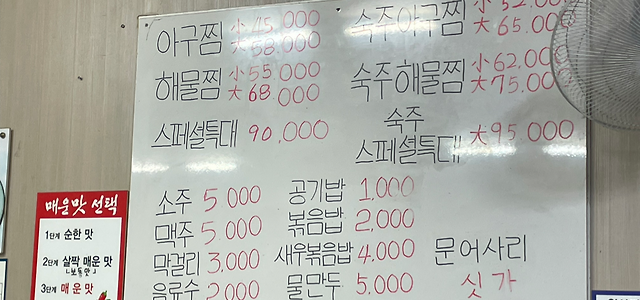 아구찜 小 45,000
大 58,000
숙주아구찜 小 52.000
大 65.000
해물찜 小 55.000
大 68.000
숙주해물찜 小 62.000
大 75.000
스페셜특대 90,000
숙주
스페셜특대 大 95.000
소주 5.000
맥주 5.000
막걸리 3,000
음료수 2.000
공기밥 1,000
볶음밥 2,000
새우볶음밥 4,000
물만두 5,000
문어사리
싯가
매운맛 선택
1단계 순한 맛
2단계 살짝 매운 맛
보통맛
3단계 매운 맛